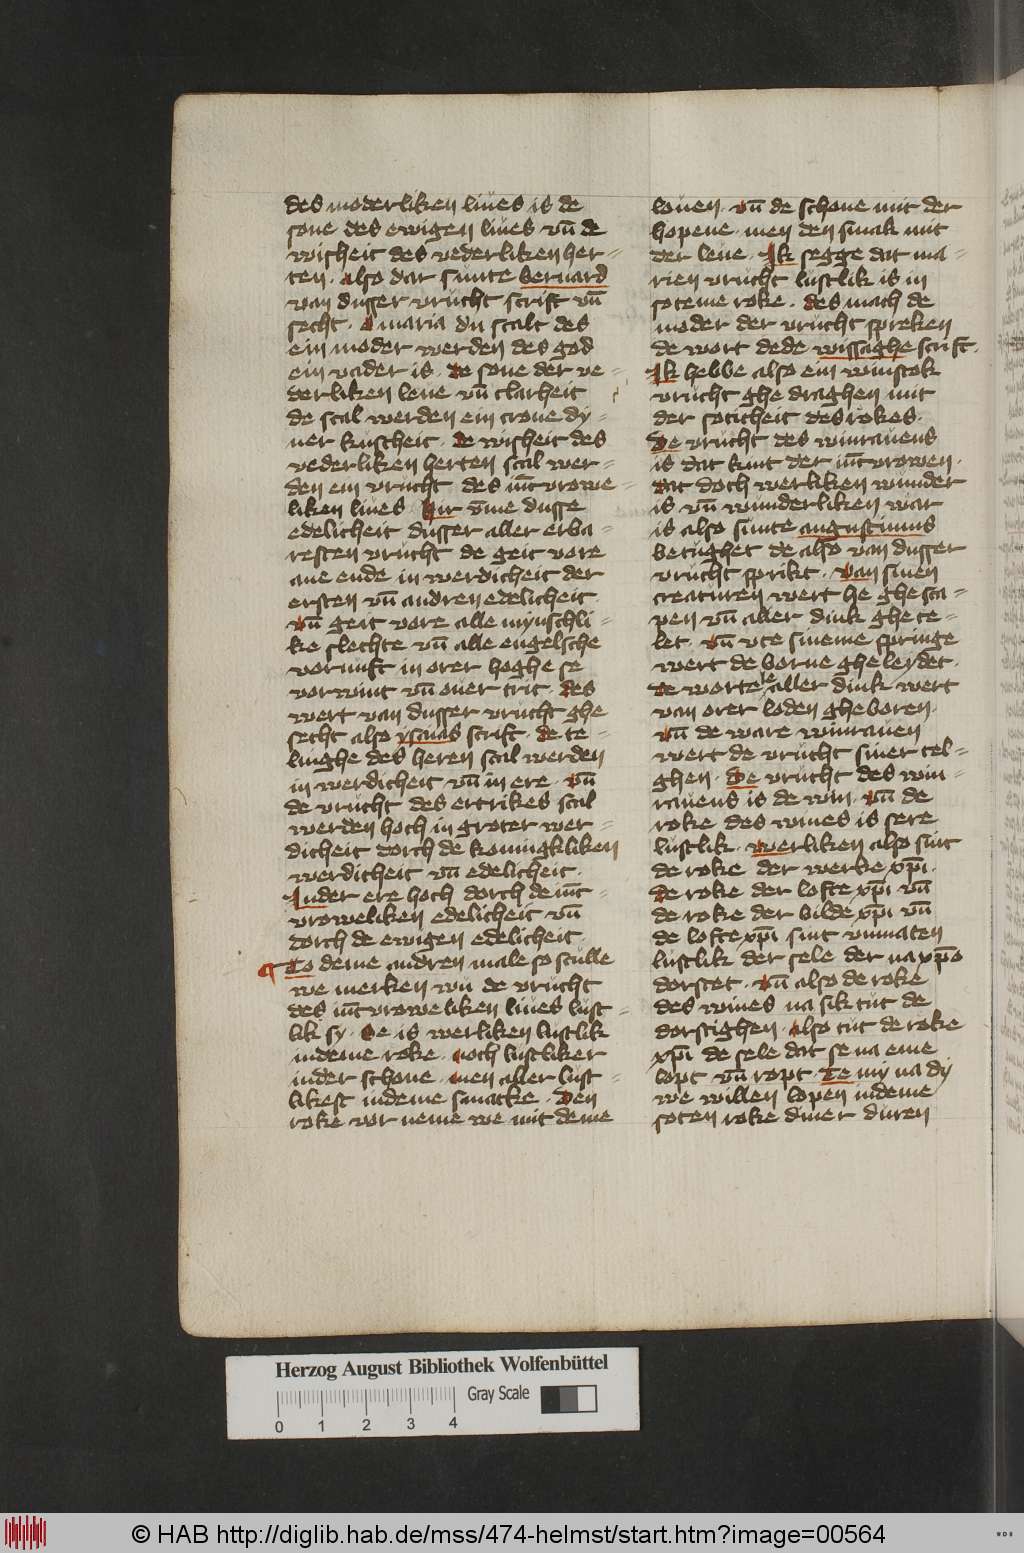 des moderliken liues is de
sone des ewigen liues vn̄ de
wisheit des vederliken her=
ten. also dar sunte bernard
van dusser vrucht scrift vn̄
secht. O maria du scalt des
ein moder werden des god
ein vader is. de sone der ve=
derliken leue vn̄ clarheit
de scal werden ein crone dy=
ner kuscheit. de wisheit des
vederliken herten scal wer=
den ein vrucht des iūc vrowe=
liken liues. Hir vm̄e dusse
edelicheit dusser aller erba=
resten vrucht de geit vore
ane ende in werdicheit der
ersten vn̄ andren edelicheit
vn̄ geit vore alle mynschli=
ke slechte vn̄ alle engelsche
vornuft in orer hoghe se
vorwint vn̄ ouer trit. des
wert van dusser vrucht ghe
secht also ysaias scrift. de te=
linghe des heren scal werden
in werdicheit vn̄ in ere. vn̄
de vrucht des ertrikes scal
werden hoch in groter wer=
dicheit dorch de konnigkliken
werdicheit vn̄ edelicheit.
Inder ere hoch dorch de iūc=
vroweliken edelicheit vn̄
dorch de ewigen edelicheit.
To deme andren male so sculle
we merken wu de vrucht
des iūc vroweliken liues lust=
lik sy. Se is werliken lustlik
indeme roke. noch lustliker
inder schone. men aller lust=
likest indeme smacke. Den
roke vor neme we mit deme
louen. vn̄ de schone mit der
hopene. men den smak mit
der leue. Ik segge dat ma=
rien vrucht lustlik is in
soteme roke. des mach de
moder der vrucht spreken
de wort dede wissaghe scrift.
Ik hebbe also ein winstok
vrucht ghe draghen mit
der soticheit des rokes.
De vrucht des winrauens
is dat kint der iūc vrowen.
dat doch werliken wunder
is vn̄ wunderliken war
is also sunte augustinus
betughet de also van dusser
vrucht sprikt. Van sinen
creaturen wert he ghe sca=
pen vn̄ aller dink ghe te=
let. vn̄ vte sineme springe
wert de borne ghe leydet.
de wortele aller dink wert
van orer loden ghe boren.
vn̄ de ware winrauen
wert de vrucht siner tel=
ghen. De vrucht des win=
rauens is de win. vn̄ de
roke des wines is sere
lustlik. werliken also sint
de roke der werke xp̄i.
de roke der lofte xp̄i vn̄
de roke der bilde xp̄i vn̄
de lofte xp̄i sint vnmaten
lustlik der sele der na xp̄o
dorstet. vn̄ also de roke
des wines na sik tut de
dorstighen. also tut de roke
xp̄i de sele dat se na eme
lopt vn̄ ropt. Te my na dy
we willen lopen indeme
soten roke diner duren
Herzog August Bibliothek Wolfenbüttel
Gray Scale
0 1 2 3 4
© HAB http://diglib.hab.de/mss/474-helmst/start.htm?image=00564